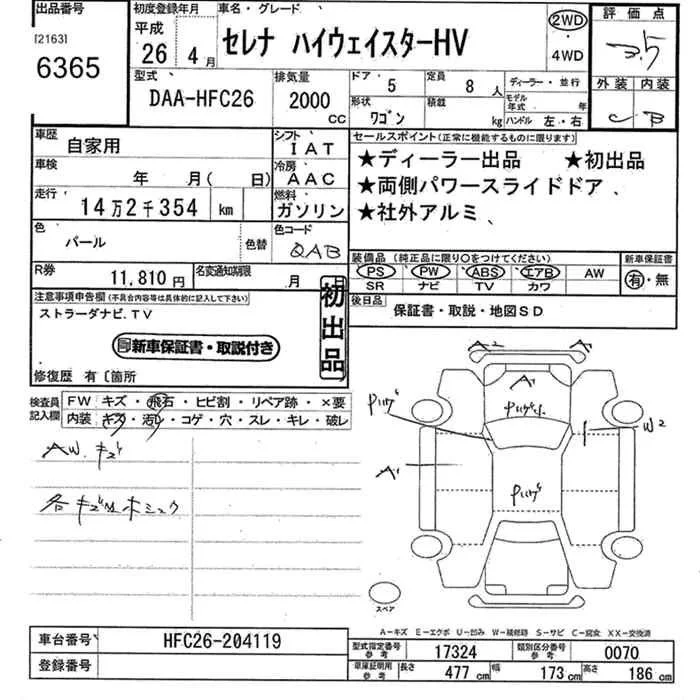 出品番号
[2163]
6365
初度登録年月
平成
26年 4月
車名・グレード
セレナ ハイウェイスターHV
2WD
4WD
評価点
3.5
外装 内装
C B
型式
DAA-HFC26
排気量
2000
CC
ドア 5
定員 8 人
形状 ワゴン
積載 kg
ディーラー・並行
モデル年式 年
ハンドル 左・右
車歴
自家用
シフト
IAT
車検
年 月( 日)
冷房
AAC
走行
14万2千354 km
燃料
ガソリン
色
パール
色替
色コード
QAB
R券
11,810円
名変通知期限
月
セールスポイント(正常に機能するものに限ります)
★ディーラー出品 ★初出品
★両側パワースライドドア
★社外アルミ
装備品 (純正品に限り○をつけてください)
PS PW ABS エアB AW
SR ナビ TV カワ
新車保証書
有・無
後日品
保証書・取説・地図SD
注意事項申告欄(不具合内容等は具体的に記入して下さい)
ストラーダナビ.TV
新車保証書・取説付き
初出品
修復歴 有〔箇所
検査員記入欄
FW キズ・飛石・ヒビ割・リペア跡・×要
内装 キズ・汚レ・コゲ・穴・スレ・キレ・破レ
AW.キズ
各キズ
A2
A2
A1
W2
A1
スペア
A-キズ E-エクボ U-凹ミ W-補修跡 S-サビ C-腐食 XX-交換済
車台番号
HFC26-204119
登録番号
型式指定番号 参考
17324
類別区分番号 参考
0070
車庫証明用 参考
長さ 477 cm
幅 173 cm
高さ 186 cm